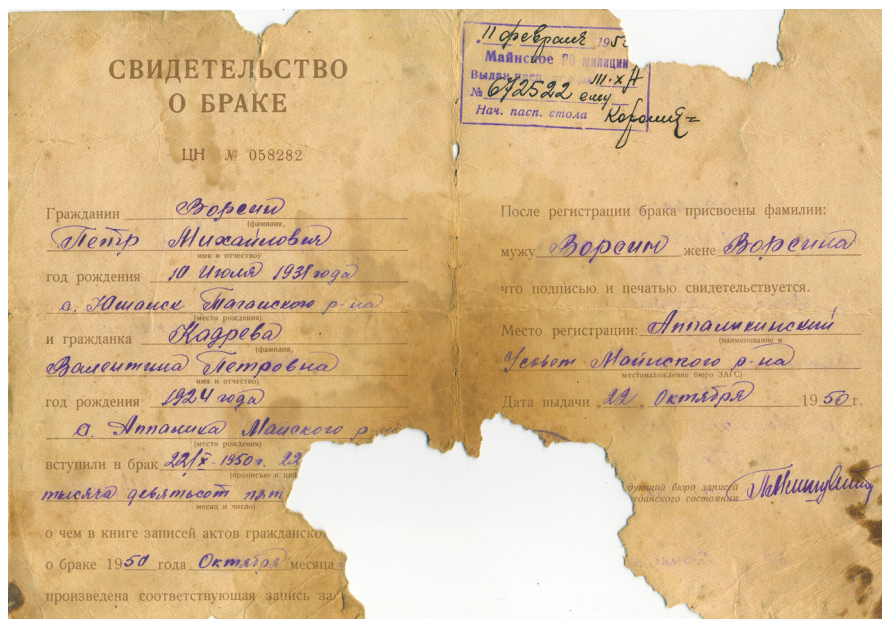 СВИДЕТЕЛЬСТВО
О БРАКЕ
ЦН № 058282
Гражданин Ворсин
(фамилия,
Петр Михайлович
имя и отчество)
год рождения 10 Июля 1931 года
(место рождения)
и гражданка Кадрева
(фамилия,
Валентина Петровна
имя и отчество)
год рождения 1924 года
с. Аппалиха Маинского р-на
(место рождения)
вступили в брак 22/X-1950 г. 22
(прописью и
тысяча девятьсот пят
месяц и число)
о чем в книге записей актов гражданско
о браке 1950 года Октября месяца
произведена соответствующая запись за
11 февраля 195
Майнское РО милиции
Выдан пасп. III-ХА
№ 672522 ему
Нач. пасп. стола
После регистрации брака присвоены фамилии:
мужу Ворсин жене Ворсина
что подписью и печатью свидетельствуется.
Место регистрации:
(наименование и
Майнского р-на
местонахождение бюро ЗАГС)
Дата выдачи „22„ Октября 1950 г.
дующий бюро записей
жданского состояния